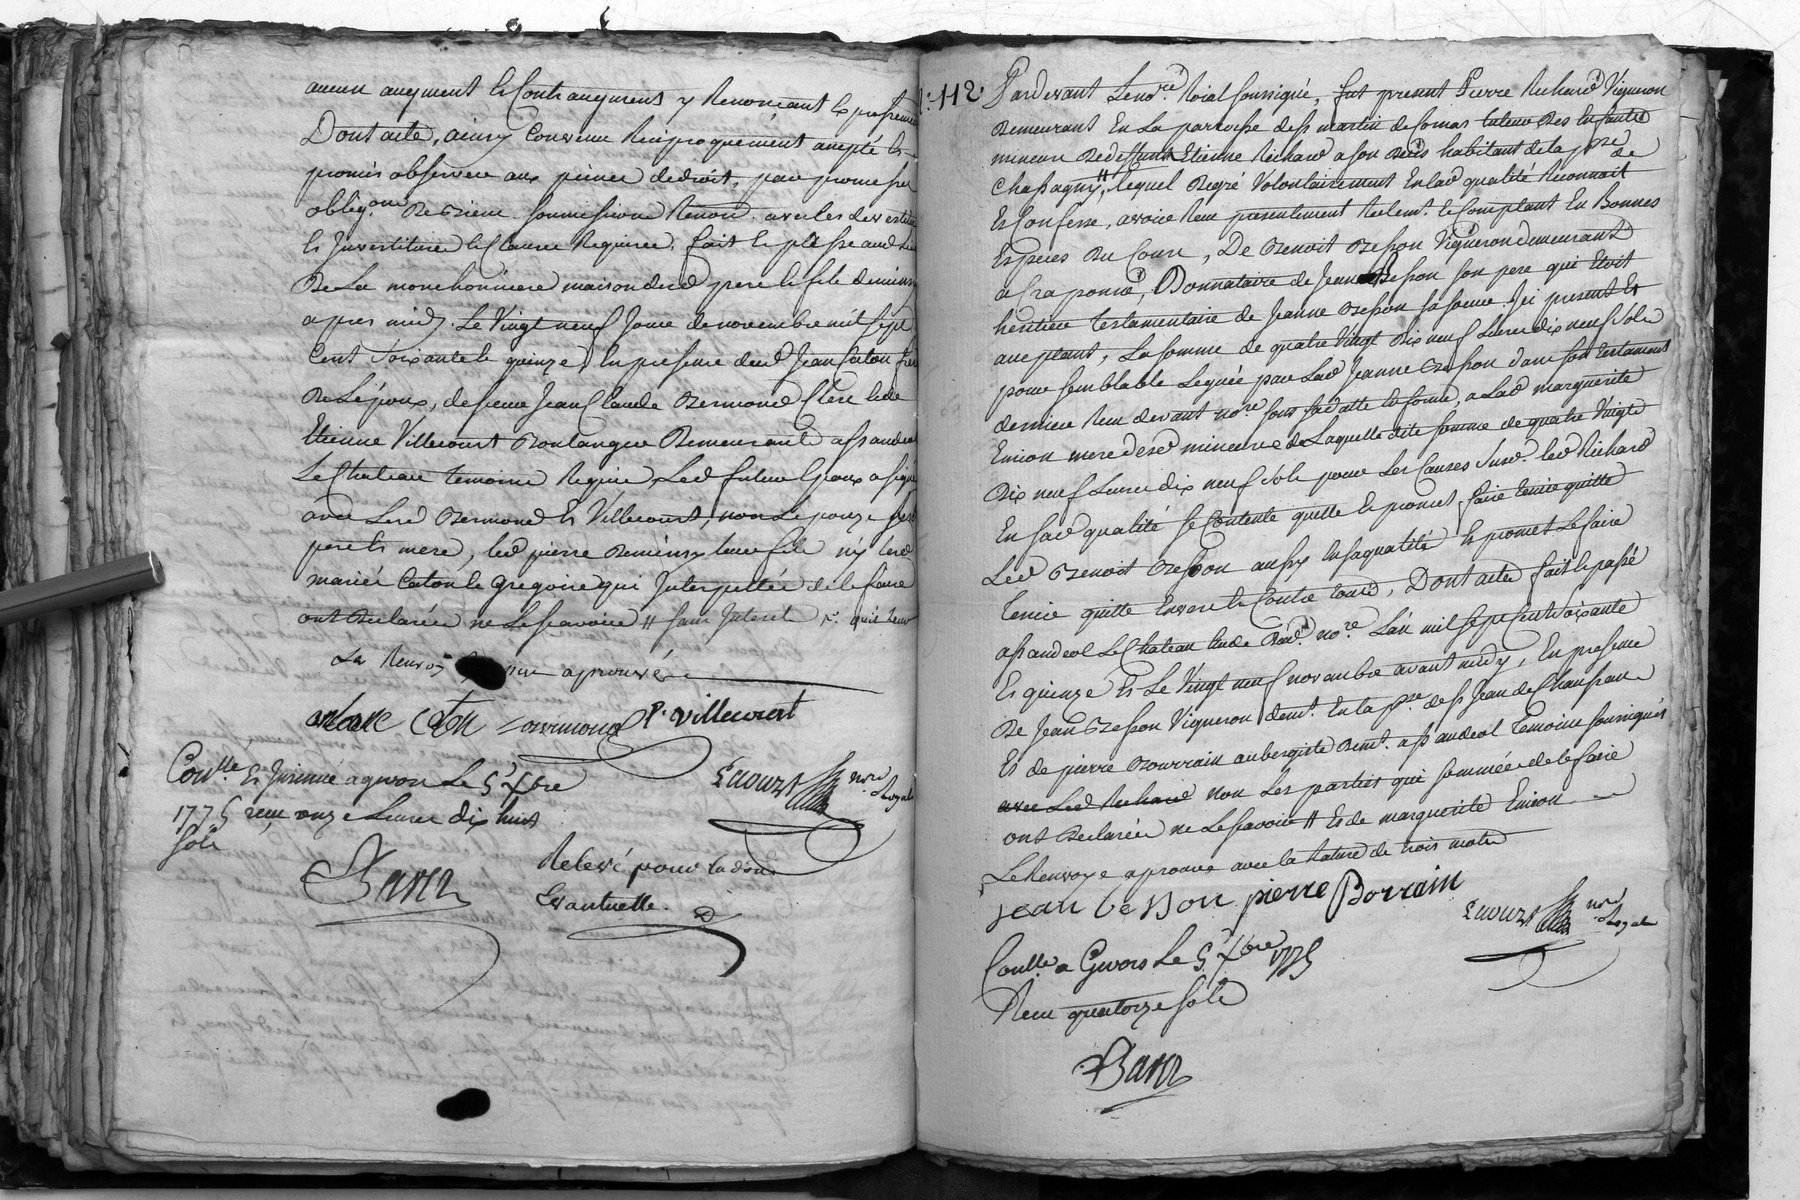 aucun augment et Contraugment y Renonçant Expressement
Dont acte, ainsy Convenu Reciproquement accepté et
promis observer aux peines de droit, par promesses
oblig.ons De Biens soumissions Renon. avec les devestitures
Et Investitures et Clauses Requises. fait et passé aud lieu
De La monchonniere maison desd pere et fils demeinsy
apres midy. Le Vingt neuf Jour de novembre mil sept
Cent Soixante et quinze, En presence dud Jean Caton frere
De L'époux, de sieur Jean Claude Bermond Clerc et de
Etienne Villecourt Boulanger Demeurants a St andeol
Le Chateau temoins Requis, Led futur Epoux a signé
avec Lesd Bermond Et Villecourt, non Lepouze ses
pere et mere, led pierre Deméinsy leur fils ny lesd
mariés Caton et Gregoire qui Interpellés de le faire
ont Declarés ne Le scavoir // sans Interet
Les Renvoy aprouvés
Caton Bermond P. Villecourt
Con.llé Et Insinué a givors Le 5 Xbre
1775 reçu onze Livres dix huit
sols
no.re Royal
Relevé pour la don.
Evantuelle.
N.° 112
Pardevant Le no.re Roial soussigné, fut present Pierre Richard Vigneron
Demeurant En La parroisse de St martin de Cornas tuteur Des Enfants
mineurs De deffunt Etienne Richard a son Deces habitant de la p.sse de
Chassagny, // lequel De gré Volontairement En lad qualité Reconnoit
Et Confesse, avoir Reçu presentement Reelem.t et Comptant En Bonnes
Especes Du Cours, De Benoit Besson Vigneron demeurant
a Craponne, Donnataire de Jean Besson son pere qui Etoit
heritier testamentaire de Jeanne Besson sa soeur Ici present Et
acceptant, La somme de quatre Vingt Dix neuf Livres dix neuf Sols
pour semblable Leguée par Lad Jeanne Besson dans son testament
dernier Reçu devant no.re sous sa datte en forme, a Lad marguerite
Emion mere desd mineurs de Laquelle dite somme de quatre Vingt
Dix neuf Livres dix neuf Sols pour Les Causes susd. led Richard
En sad qualité se Contente quitte et promet faire tenir quitte
Led Benoit Besson aussy En sa qualité Et promet Le faire
tenir quitte Envers et Contre tous, Dont acte fait et passé
a St andeol Le Chateau Etude Dud. no.re L'an mil sept Cent soixante
Et quinze Et Le Vingt neuf novembre avant midy, En presence
De Jean Besson Vigneron dem.t En la p.sse de St Jean de Chaussan
Et de pierre Bourrain aubergiste Dem.t a St andeol temoins soussignés
avec Led Richard non Les parties qui sommées de le faire
ont Declarés ne Le scavoir // Et de marguerite Emion
Le Renvoy aprouvé avec la Rature de trois mots
jean besson pierre Borrain
no.re Royal
Con.llé a Givors Le 5 Xbre 1775
Reçu quatorze sols